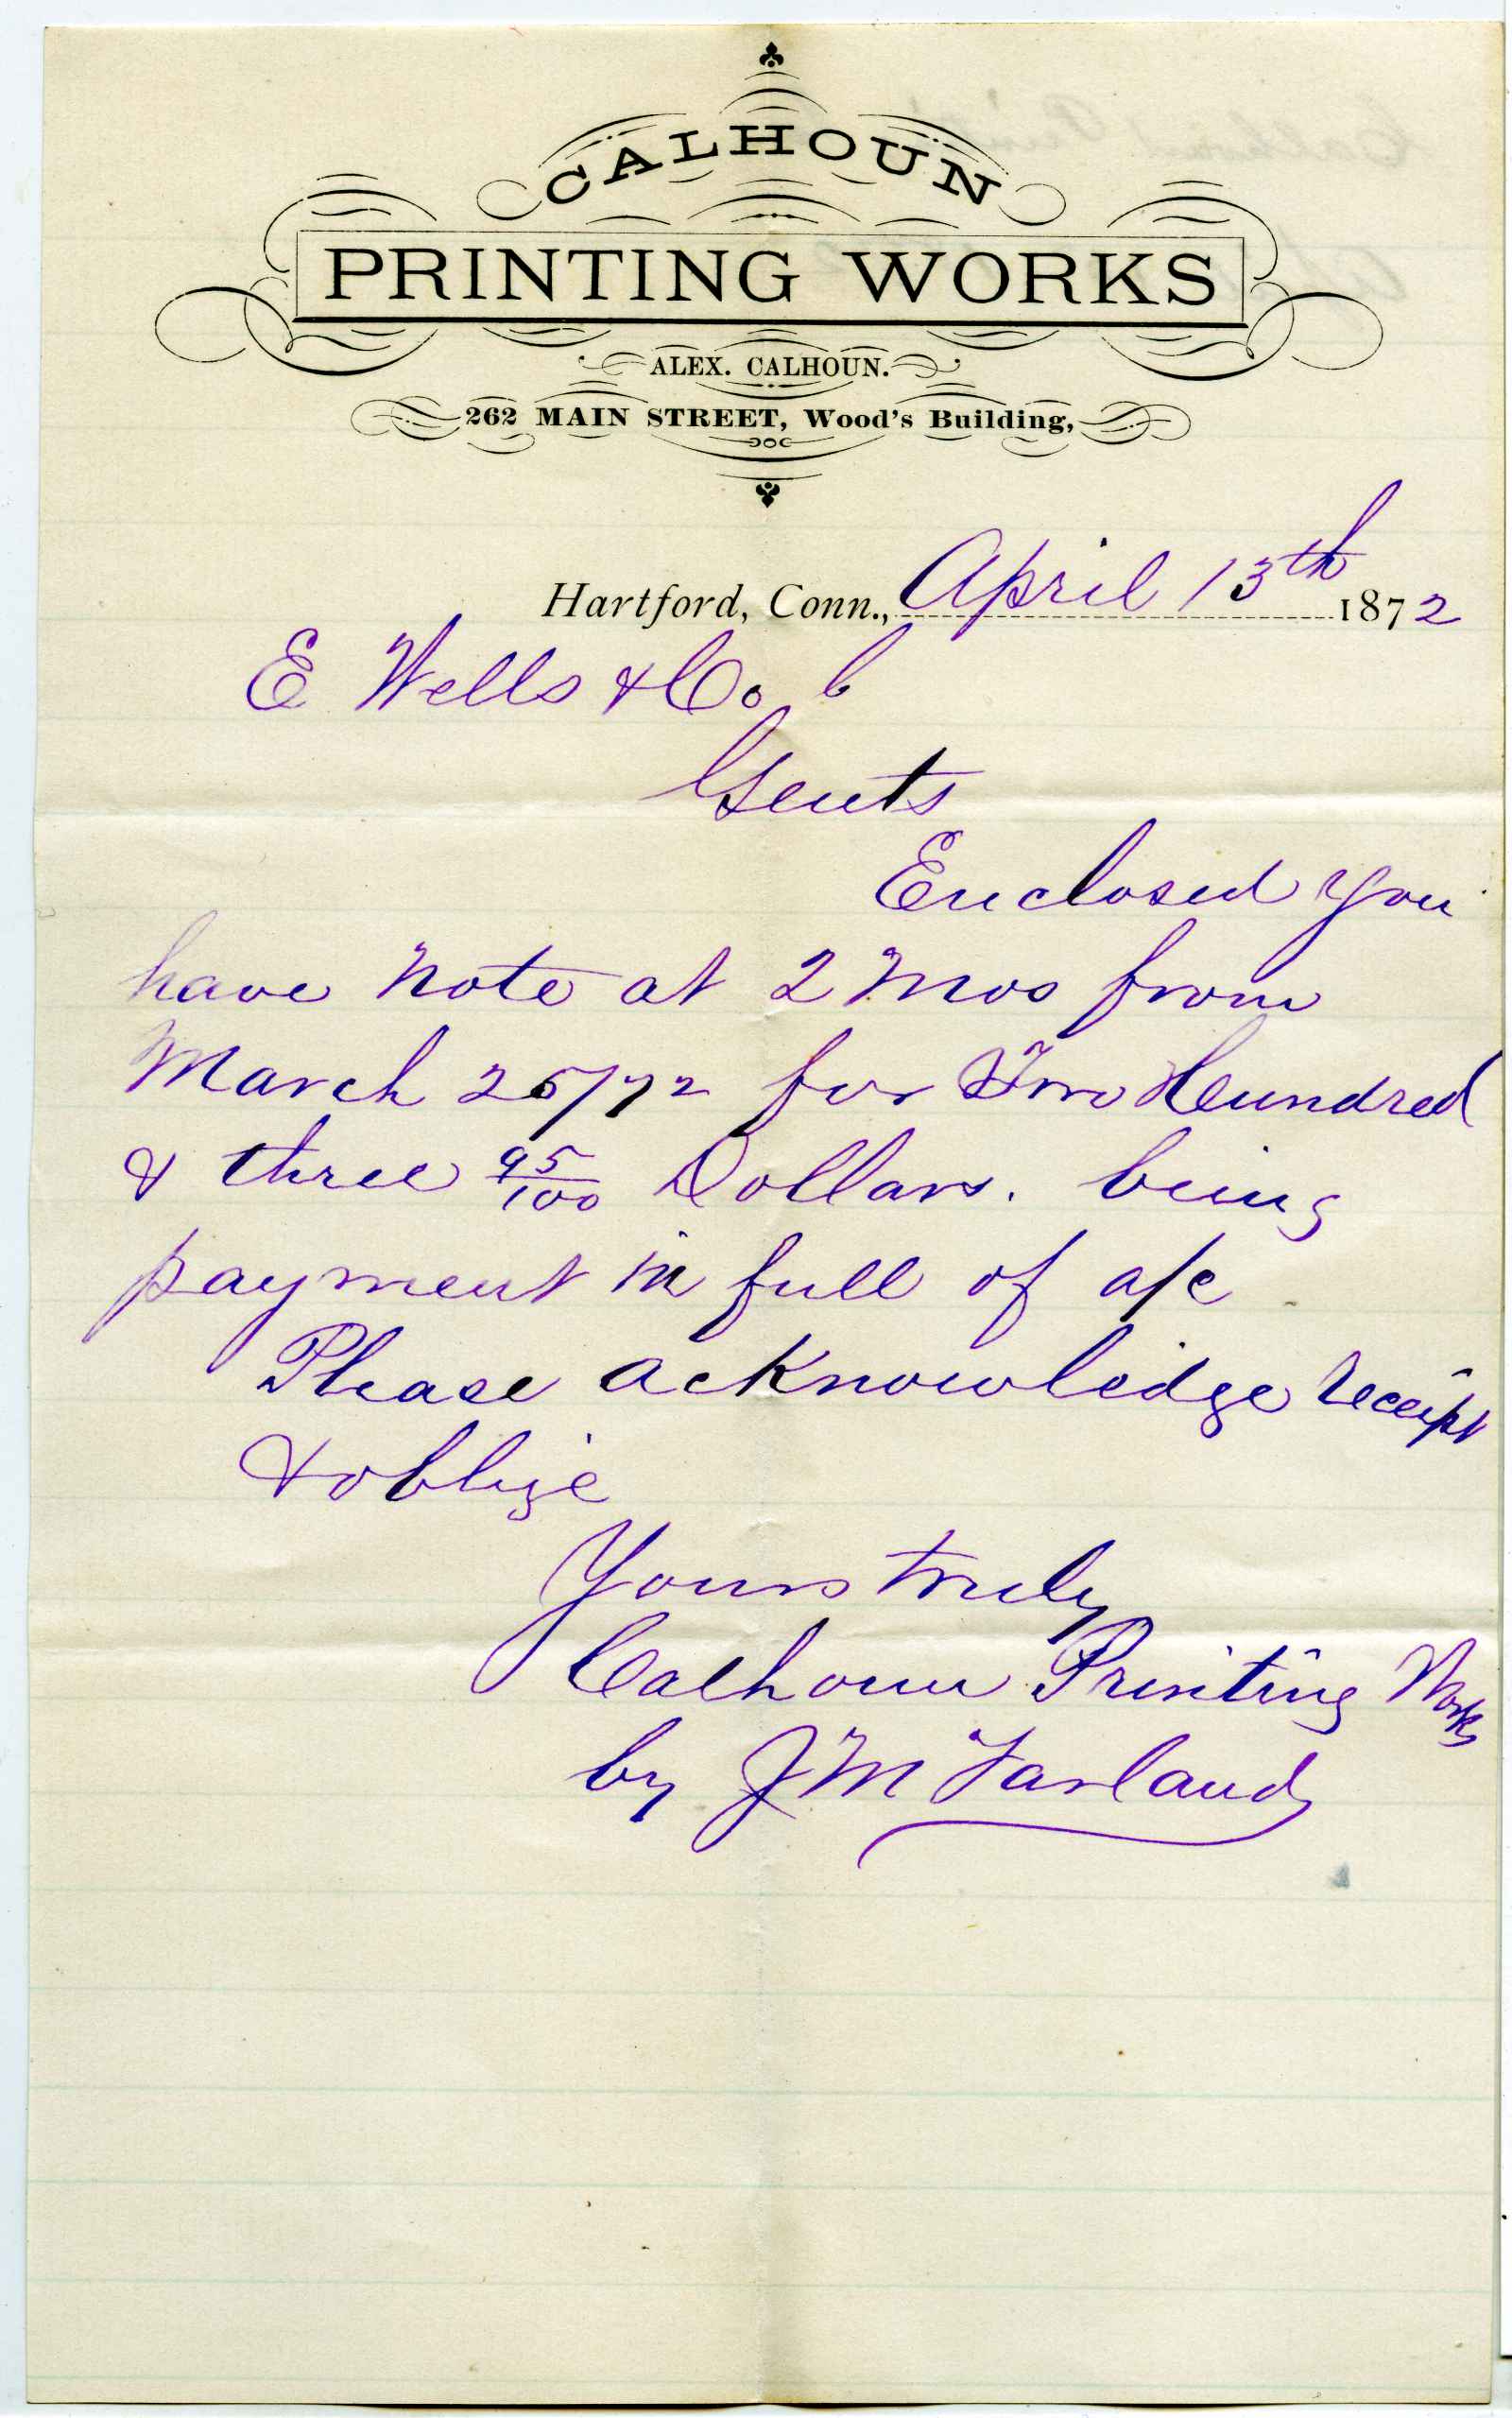 CALHOUN
PRINTING WORKS
ALEX. CALHOUN.
262 MAIN STREET, Wood's Building,
Hartford, Conn., April 13th 1872
E Wells & Co
Gents
Enclosed you
have note at 2 mos from
March 25/72 for Two Hundred
& three 95/100 Dollars. being
payment in full of a/c
Please acknowledge receipt
& oblige
Yours truly
Calhoun Printing Works
by J M Farland